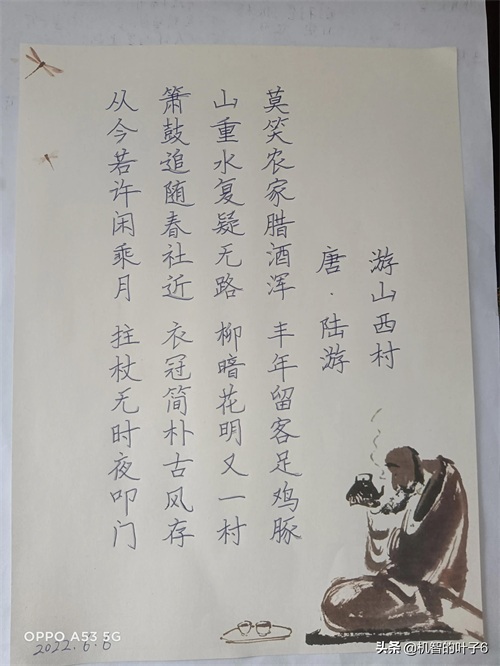 游山西村
唐·陆游
莫笑农家腊酒浑 丰年留客足鸡豚
山重水复疑无路 柳暗花明又一村
箫鼓追随春社近 衣冠简朴古风存
从今若许闲乘月 拄杖无时夜叩门
OPPO A53 5G
2022.6.6
头条 @机智的叶子6